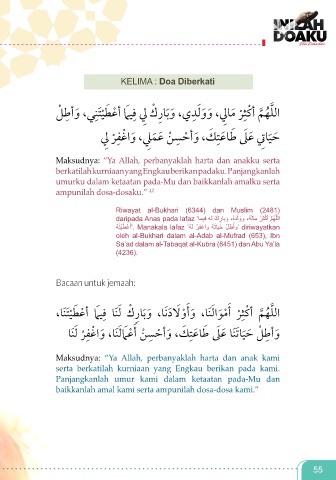 INILAH
DOAKU
KELIMA : Doa Diberkati
اللَّهُمَّ أَكْثِرْ مَالِي، وَوَلَدِي، وَبَارِكْ لِي فِيمَا أَعْطَيْتَنِي، وَأَطِلْ
حَيَاتِي عَلَى طَاعَتِكَ، وَأَحْسِنْ عَمَلِي، وَاغْفِرْ لِي
Maksudnya: “Ya Allah, perbanyaklah harta dan anakku serta
berkatilah kurniaan yang Engkau berikan padaku. Panjangkanlah
umurku dalam ketaatan pada-Mu dan baikkanlah amalku serta
ampunilah dosa-dosaku.”
Riwayat al-Bukhari (6344) dan Muslim (2481)
daripada Anas pada lafaz اللَّهُمَّ أَكْثِرْ مَالَهُ، وَوَلَدَهُ، وَبَارِكْ لَهُ فِيمَا
أَعْطَيْتَهُ. Manakala lafaz وَأَطِلْ حَيَاتَهُ وَاغْفِرْ لَهُ diriwayatkan
oleh al-Bukhari dalam al-Adab al-Mufrad (653), Ibn
Sa’ad dalam al-Tabaqat al-Kubra (8451) dan Abu Ya’la
(4236).
Bacaan untuk jemaah:
اللَّهُمَّ أَكْثِرْ أَمْوَالَنَا، وَأَوْلَادَنَا، وَبَارِكْ لَنَا فِيمَا أَعْطَيْتَنَا،
وَأَطِلْ حَيَاتَنَا عَلَى طَاعَتِكَ، وَأَحْسِنْ أَعْمَالَنَا، وَاغْفِرْ لَنَا
Maksudnya: “Ya Allah, perbanyaklah harta dan anak kami
serta berkatilah kurniaan yang Engkau berikan pada kami.
Panjangkanlah umur kami dalam ketaatan pada-Mu dan
baikkanlah amal kami serta ampunilah dosa-dosa kami.”
55